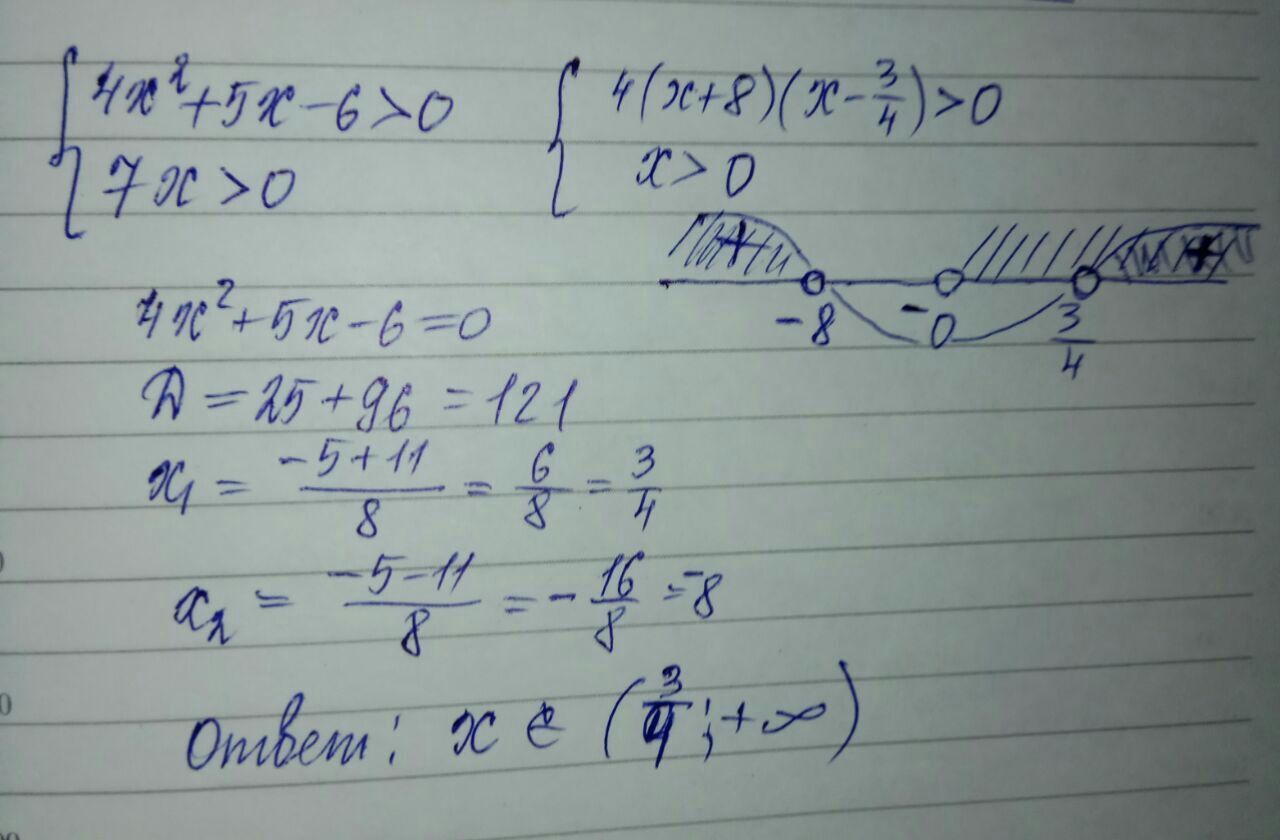 4x²+5x-6>0
7x>0
4(x+8)(x-3/4)>0
x>0
+ - +
-8 0 3/4
4x²+5x-6=0
D=25+96=121
x₁ = (-5+11)/8 = 6/8 = 3/4
x₂ = (-5-11)/8 = -16/8 = -8
Ответ: x ∈ (3/4; +∞)